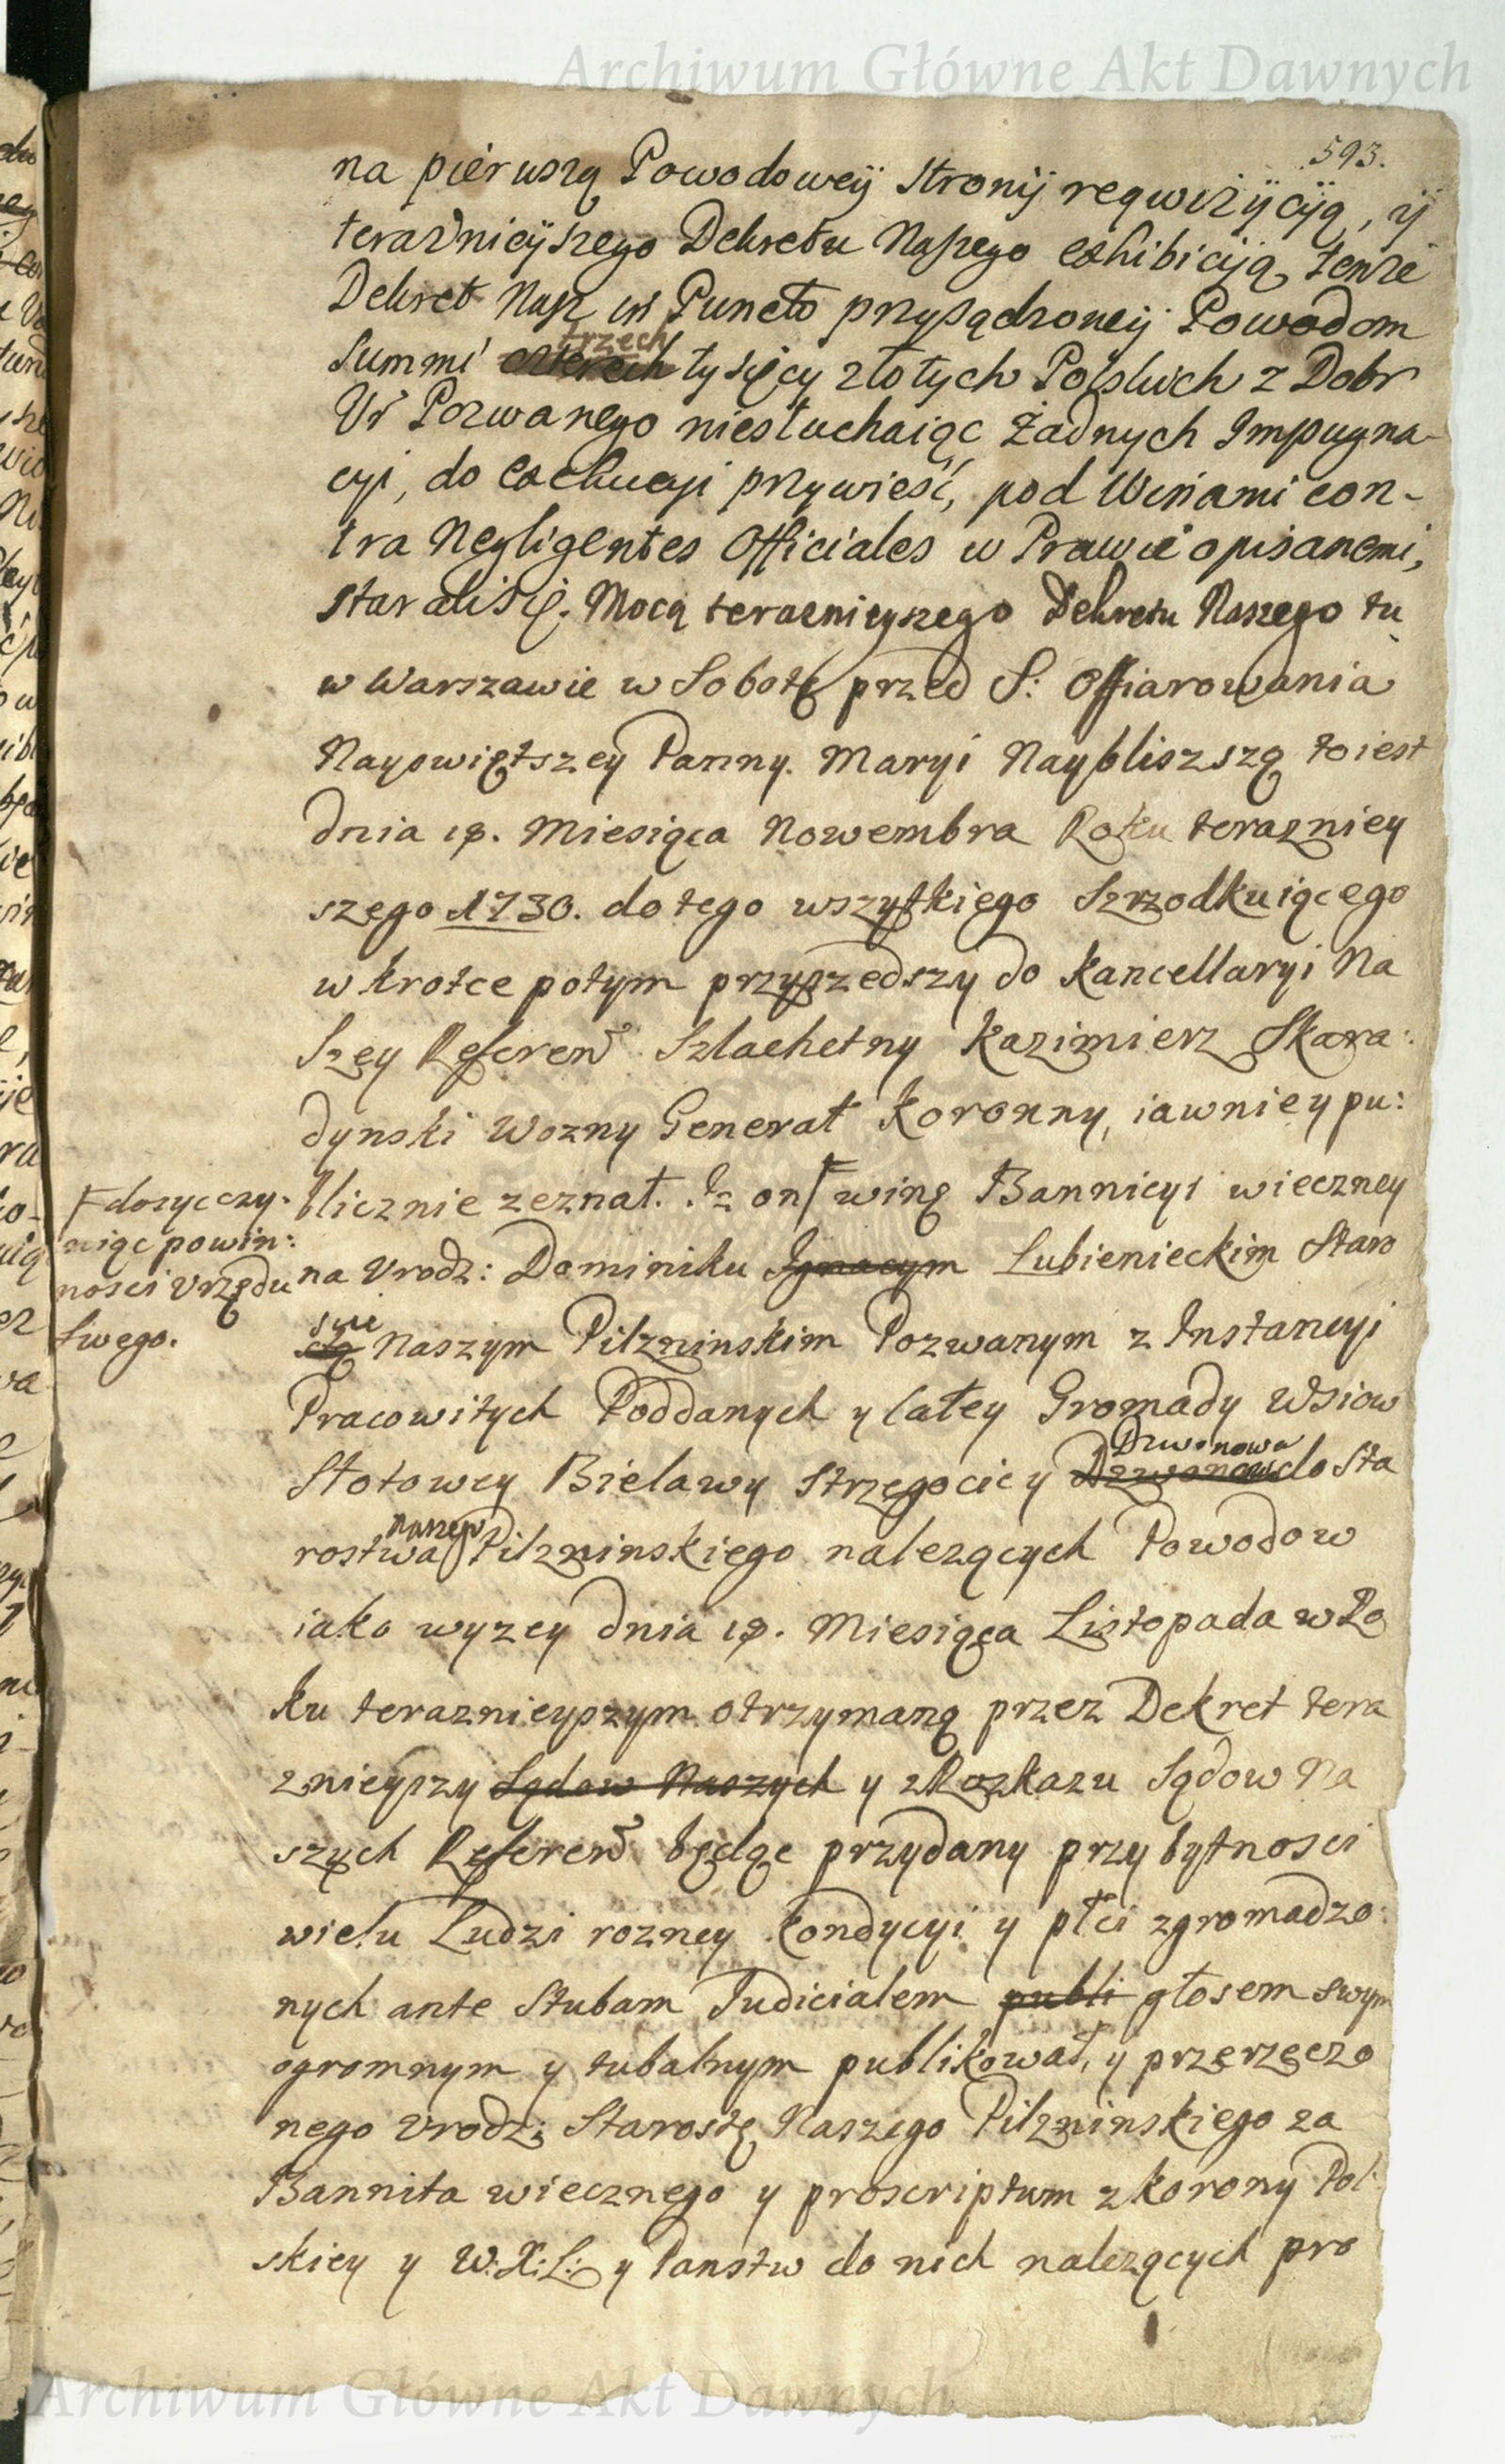 Archiwum Główne Akt Dawnych
593.
na pierwszą Powodoweÿ Stronÿ reqwiżÿcÿą, ÿ
teraznieÿszego Dekretu Naszego exhibicÿą, tenże
Dekret Nasz in Puncto przysądzoneÿ Powodom
trzech
Summi czterech tysięcy złotych Polskich z Dobr
Ur Pozwanego niesłuchaiąc żadnych Impugna-
cyi, do exekucyi przywieść, pod Winami con-
tra Negligentes Officiales w Prawie opisanemi,
starali się. Mocą teraznieyszego Dekretu Naszego tu
w Warszawie w Sobotę przed S: Offiarowania
Nayswiętszey Panny Maryi Naybliszszą to iest
dnia 18. Miesiąca Nowembra Roku terazniey
szego 1730. do tego wszytkiego Szrzodkuiącego
w krotce potym przyszedszy do Kancellaryi Na
szey Referen Szlachetny Kazimierz Skara:
dynski Wozny Generał Koronny, iawnie y pu:
blicznie zeznał. Iz on F winę Bannicyi wieczney
F dosyc czy-
niąc powin:
nosci Urzędu
swego.
na Urodz: Dominiku Ignacym Lubienieckim Staro
scie
stą Naszym Pilzninskim Pozwanym z Instancyi
Pracowitych Poddanych y całey Gromady Wsiow
Dzwonowa
Stotowey Bielawy Strzegocic y Dzwonow do Sta
naszego
rostwa Pilzninskiego nalezących Powodow
iako wyzey dnia 18. Miesiąca Listopada w Ro
ku teraznieyszym otrzymaną przez Dekret tera
znieyszy Sądow Naszych y z Rozkazu Sądow Na
szych Referen będąc przydany przy bytnosci
wielu Ludzi rozney kondycyi y płci zgromadzo:
nych ante Stubam Judicialem publi głosem swym
ogromnym y tubalnym publikował, y przerzeczo
nego Urodz: Starostę Naszego Pilzninskiego za
Bannita wiecznego y proscriptum z korony Pol:
skiey y W: X: L: y Panstw do nich nalezących pro
Archiwum Główne Akt Dawnych